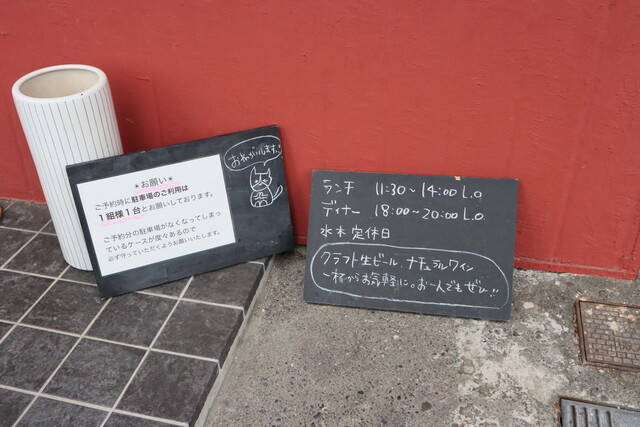 ＊お願い＊
ご予約時に駐車場のご利用は
1組様1台とお願いしております。
ご予約分の駐車場がなくなってしまっ
ているケースが度々あるので
必ず守っていただくようお願いいたします。
おねがいします!
ランチ 11:30~14:00 L.O
ディナー 18:00~20:00 L.O.
水木 定休日
クラフト生ビール、ナチュラルワイン
一杯からお気軽に。お一人でもぜひ!!